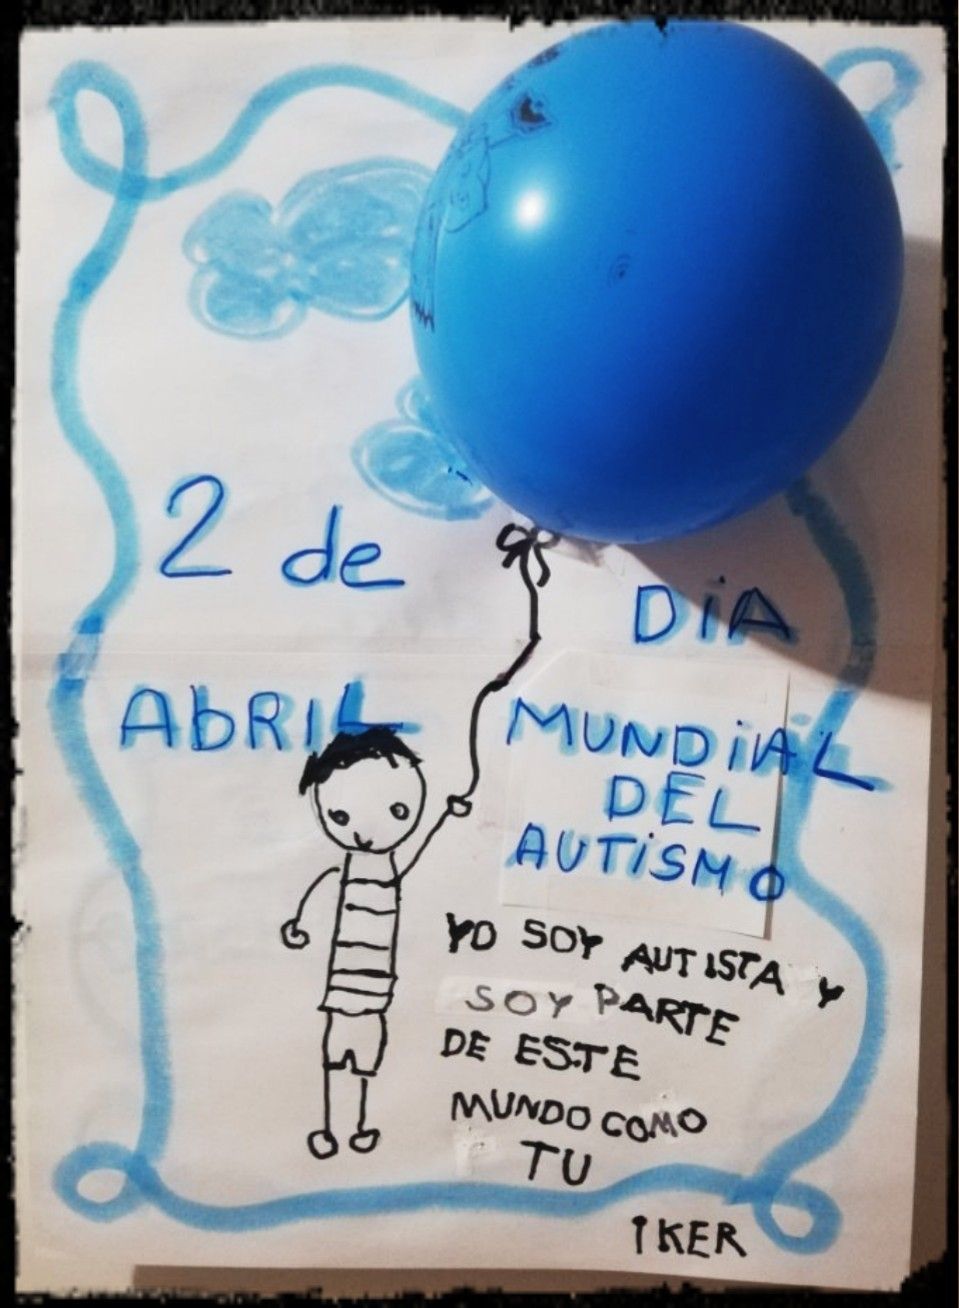 2 de
ABRIL
DiA
MUNDiAL
DEL
AUTiSMO
YO SOY AUTISTA Y
SOY PARTE
DE ESTE
MUNDO COMO
TU
iKER